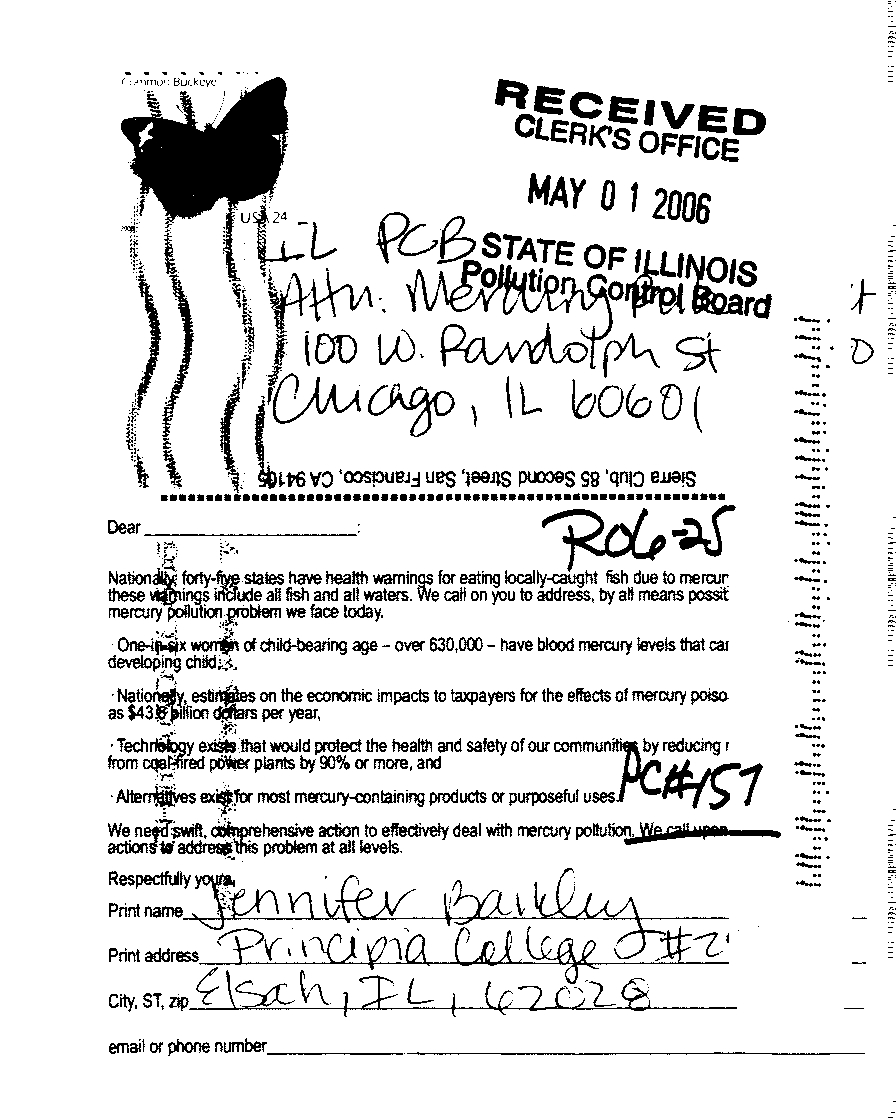 Common Buckeye
RECEIVED
CLERK'S OFFICE
MAY 01 2006
USA 24
STATE OF ILLINOIS
Pollution Control Board
IL PCB
Attn: Mercury
100 W. Randolph St
Chicago, IL 60601
Sierra Club, 85 Second Street, San Francisco, CA 94105
Dear ____________________:
R06-25
Nationally, forty-five states have health warnings for eating locally-caught fish due to mercur
these warnings include all fish and all waters. We call on you to address, by all means possit
mercury pollution problem we face today.
· One-in-six women of child-bearing age – over 630,000 – have blood mercury levels that can
developing child;
· Nationally, estimates on the economic impacts to taxpayers for the effects of mercury poiso
as $43.8 billion dollars per year,
· Technology exists that would protect the health and safety of our communities by reducing r
from coal-fired power plants by 90% or more, and
· Alternatives exist for most mercury-containing products or purposeful uses.
PC#157
We need swift, comprehensive action to effectively deal with mercury pollution. We call upon
actions to address this problem at all levels.
Respectfully yours,
Print name Jennifer Barkley
Print address Principia College
City, ST, zip Elsah, IL, 62028
email or phone number